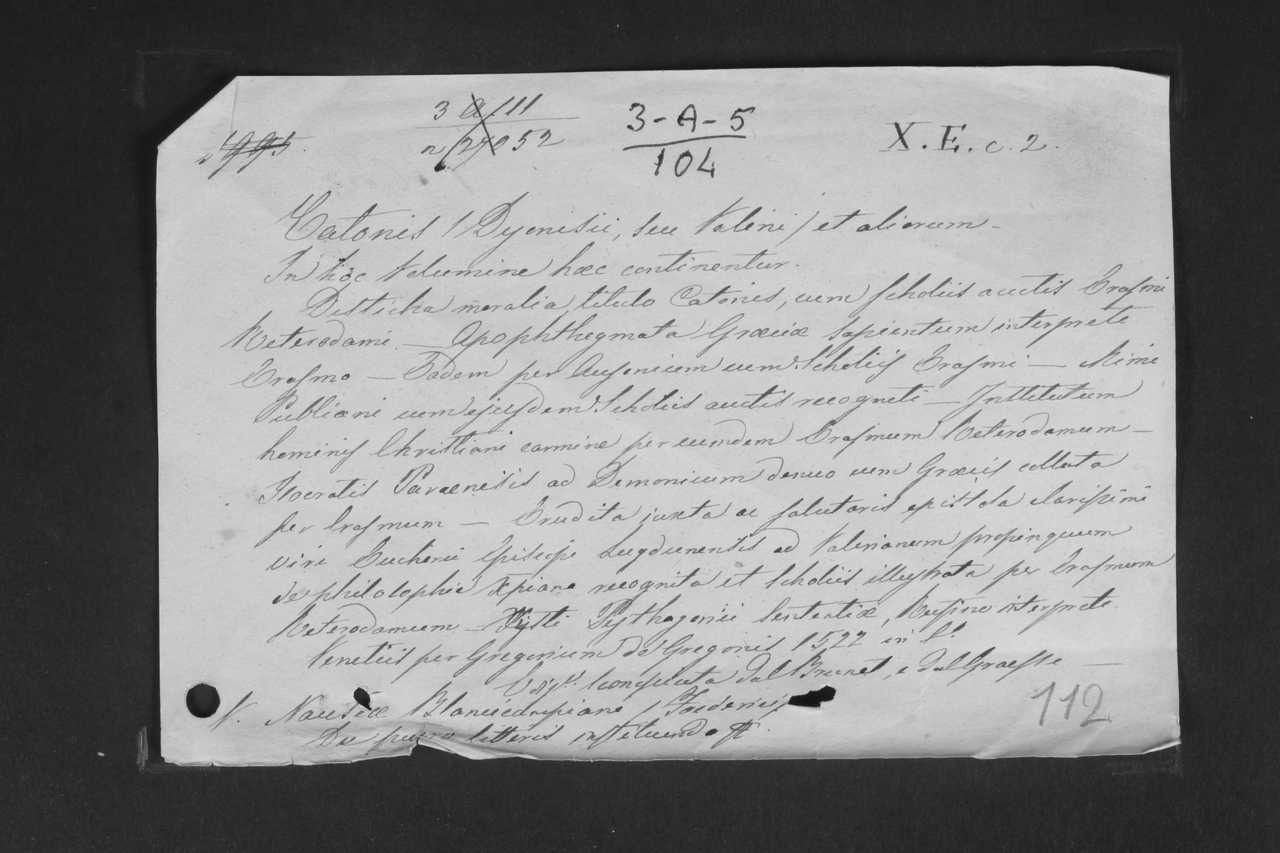 3 A 111
n 27052
3-A-5
104
X.E. c. 2.
Catonis (Dyonisii, seu Valerii) et aliorum -
In hoc Volumine hæc continentur.
Disticha moralia, titulo Catonis, cum scholiis auctis Erasmi
Roterodami. — Apophthegmata Græciæ sapientum interprete
Erasmo — Eadem per Ausonium cum Scholiis Erasmi — Mimi
Publiani cum ejusdem Scholiis auctis recogniti — Institutum
hominis Christiani carmine per eumdem Erasmum Roterodamum —
Isocratis Parænesis ad Demonicum denuo cum Græcis collata
per Erasmum — Erudita juxta ac salutaris epistola clarissimi
viri Eucherii Episcopi Lugdunensis ad Valerianum propinquum
de philosophia Xpiana recognita et Scholiis illustrata per Erasmum
Roterodamum — Xysti Pysthagorici sententiæ, Rufino interprete.
Venetiis per Gregorium de Gregoriis 1522 in 8°
Ediz. sconosciuta dal Brunet, e dal Graesse —
V. Nauseæ Blancicampiani (Frederici
De puero litteris instituendo
112